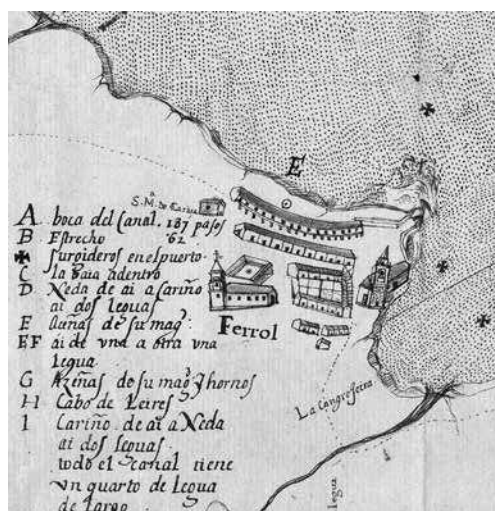 E
S.M.ª de
A boca del Canal. 187 pasos
B Estrecho 62
✠ surgideros en el puerto.
C la baia adentro
D Neda de ai a Cariño
ai dos leguas
E de su magᵈ
EF ái de vna a otra vna
legua.
G Azeñas de su magᵈ y hornos
H Cabo de Leires
I Cariño. de ai a Neda
ai dos leguas.
todo el canal tiene
vn quarto de legua
de largo
Ferrol
La Cangrejeira
legua